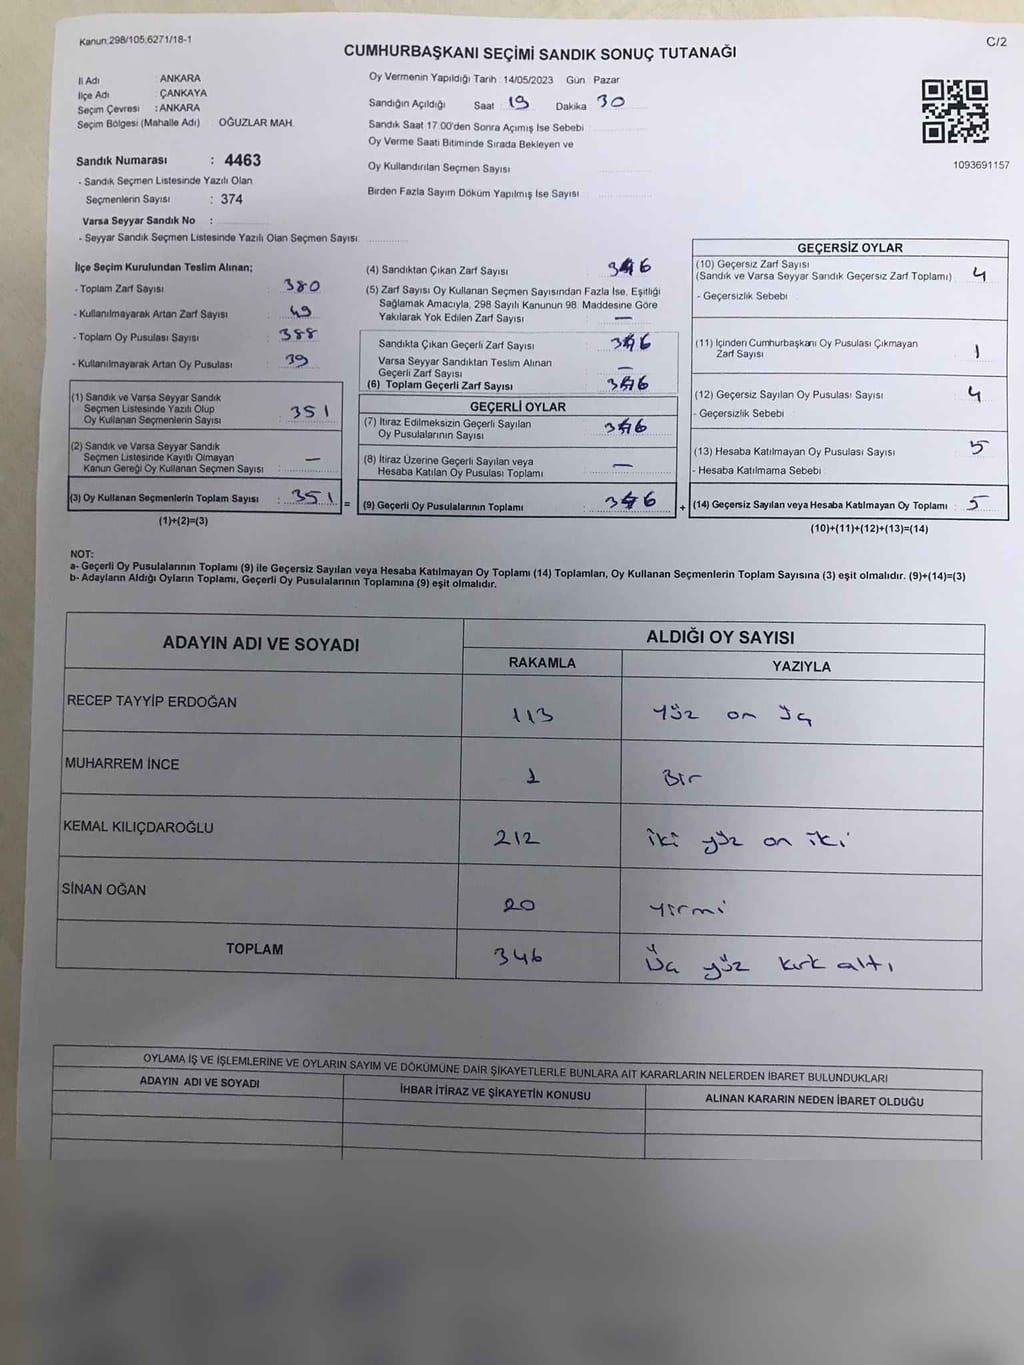 Kanun:298/105;6271/18-1
C/2
CUMHURBAŞKANI SEÇİMİ SANDIK SONUÇ TUTANAĞI
İl Adı : ANKARA
İlçe Adı : ÇANKAYA
Seçim Çevresi : ANKARA
Seçim Bölgesi (Mahalle Adı) : OĞUZLAR MAH.
Oy Vermenin Yapıldığı Tarih : 14/05/2023 Gün : Pazar
Sandığın Açıldığı Saat : 19 Dakika : 30
Sandık Saat 17:00'den Sonra Açımış İse Sebebi :
Oy Verme Saati Bitiminde Sırada Bekleyen ve
Oy Kullandırılan Seçmen Sayısı :
Birden Fazla Sayım Döküm Yapılmış İse Sayısı :
1093691157
Sandık Numarası : 4463
- Sandık Seçmen Listesinde Yazılı Olan
Seçmenlerin Sayısı : 374
Varsa Seyyar Sandık No :
- Seyyar Sandık Seçmen Listesinde Yazılı Olan Seçmen Sayısı:
İlçe Seçim Kurulundan Teslim Alınan;
- Toplam Zarf Sayısı : 380
- Kullanılmayarak Artan Zarf Sayısı : 49
- Toplam Oy Pusulası Sayısı : 388
- Kullanılmayarak Artan Oy Pusulası : 39
(1) Sandık ve Varsa Seyyar Sandık
Seçmen Listesinde Yazılı Olup
Oy Kullanan Seçmenlerin Sayısı : 351
(2) Sandık ve Varsa Seyyar Sandık
Seçmen Listesinde Kayıtlı Olmayan
Kanun Gereği Oy Kullanan Seçmen Sayısı : —
(3) Oy Kullanan Seçmenlerin Toplam Sayısı : 351 =
(1)+(2)=(3)
(4) Sandıktan Çıkan Zarf Sayısı : 346
(5) Zarf Sayısı Oy Kullanan Seçmen Sayısından Fazla İse, Eşitliği
Sağlamak Amacıyla, 298 Sayılı Kanunun 98. Maddesine Göre
Yakılarak Yok Edilen Zarf Sayısı : —
Sandıkta Çıkan Geçerli Zarf Sayısı : 346
Varsa Seyyar Sandıktan Teslim Alınan
Geçerli Zarf Sayısı : —
(6) Toplam Geçerli Zarf Sayısı : 346
GEÇERLİ OYLAR
(7) İtiraz Edilmeksizin Geçerli Sayılan
Oy Pusulalarının Sayısı : 346
(8) İtiraz Üzerine Geçerli Sayılan veya
Hesaba Katılan Oy Pusulası Toplamı : —
(9) Geçerli Oy Pusulalarının Toplamı : 346 +
GEÇERSİZ OYLAR
(10) Geçersiz Zarf Sayısı
(Sandık ve Varsa Seyyar Sandık Geçersiz Zarf Toplamı) : 4
- Geçersizlik Sebebi :
(11) İçinden Cumhurbaşkanı Oy Pusulası Çıkmayan
Zarf Sayısı : 1
(12) Geçersiz Sayılan Oy Pusulası Sayısı : 4
- Geçersizlik Sebebi :
(13) Hesaba Katılmayan Oy Pusulası Sayısı : 5
- Hesaba Katılmama Sebebi :
(14) Geçersiz Sayılan veya Hesaba Katılmayan Oy Toplamı : 5
(10)+(11)+(12)+(13)=(14)
NOT:
a- Geçerli Oy Pusulalarının Toplamı (9) ile Geçersiz Sayılan veya Hesaba Katılmayan Oy Toplamı (14) Toplamları, Oy Kullanan Seçmenlerin Toplam Sayısına (3) eşit olmalıdır. (9)+(14)=(3)
b- Adayların Aldığı Oyların Toplamı, Geçerli Oy Pusulalarının Toplamına (9) eşit olmalıdır.
ADAYIN ADI VE SOYADI
ALDIĞI OY SAYISI
RAKAMLA YAZIYLA
RECEP TAYYİP ERDOĞAN 113 Yüz on üç
MUHARREM İNCE 1 Bir
KEMAL KILIÇDAROĞLU 212 iki yüz on iki
SİNAN OĞAN 20 yirmi
TOPLAM 346 Üç yüz kırk altı
OYLAMA İŞ VE İŞLEMLERİNE VE OYLARIN SAYIM VE DÖKÜMÜNE DAİR ŞİKAYETLERLE BUNLARA AİT KARARLARIN NELERDEN İBARET BULUNDUKLARI
ADAYIN ADI VE SOYADI
İHBAR İTİRAZ VE ŞİKAYETİN KONUSU
ALINAN KARARIN NEDEN İBARET OLDUĞU